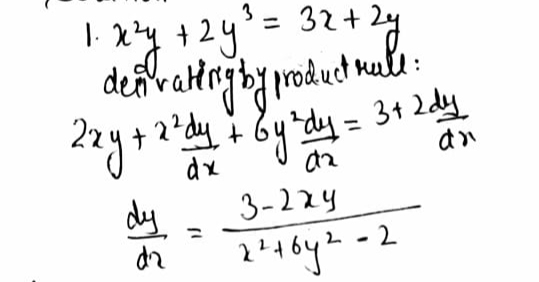 1. x²y + 2y³ = 3x + 2y
derivating by product rule:
2xy + x² dy/dx + 6y² dy/dx = 3 + 2 dy/dx
dy/dx = (3 - 2xy)/(x² + 6y² - 2)